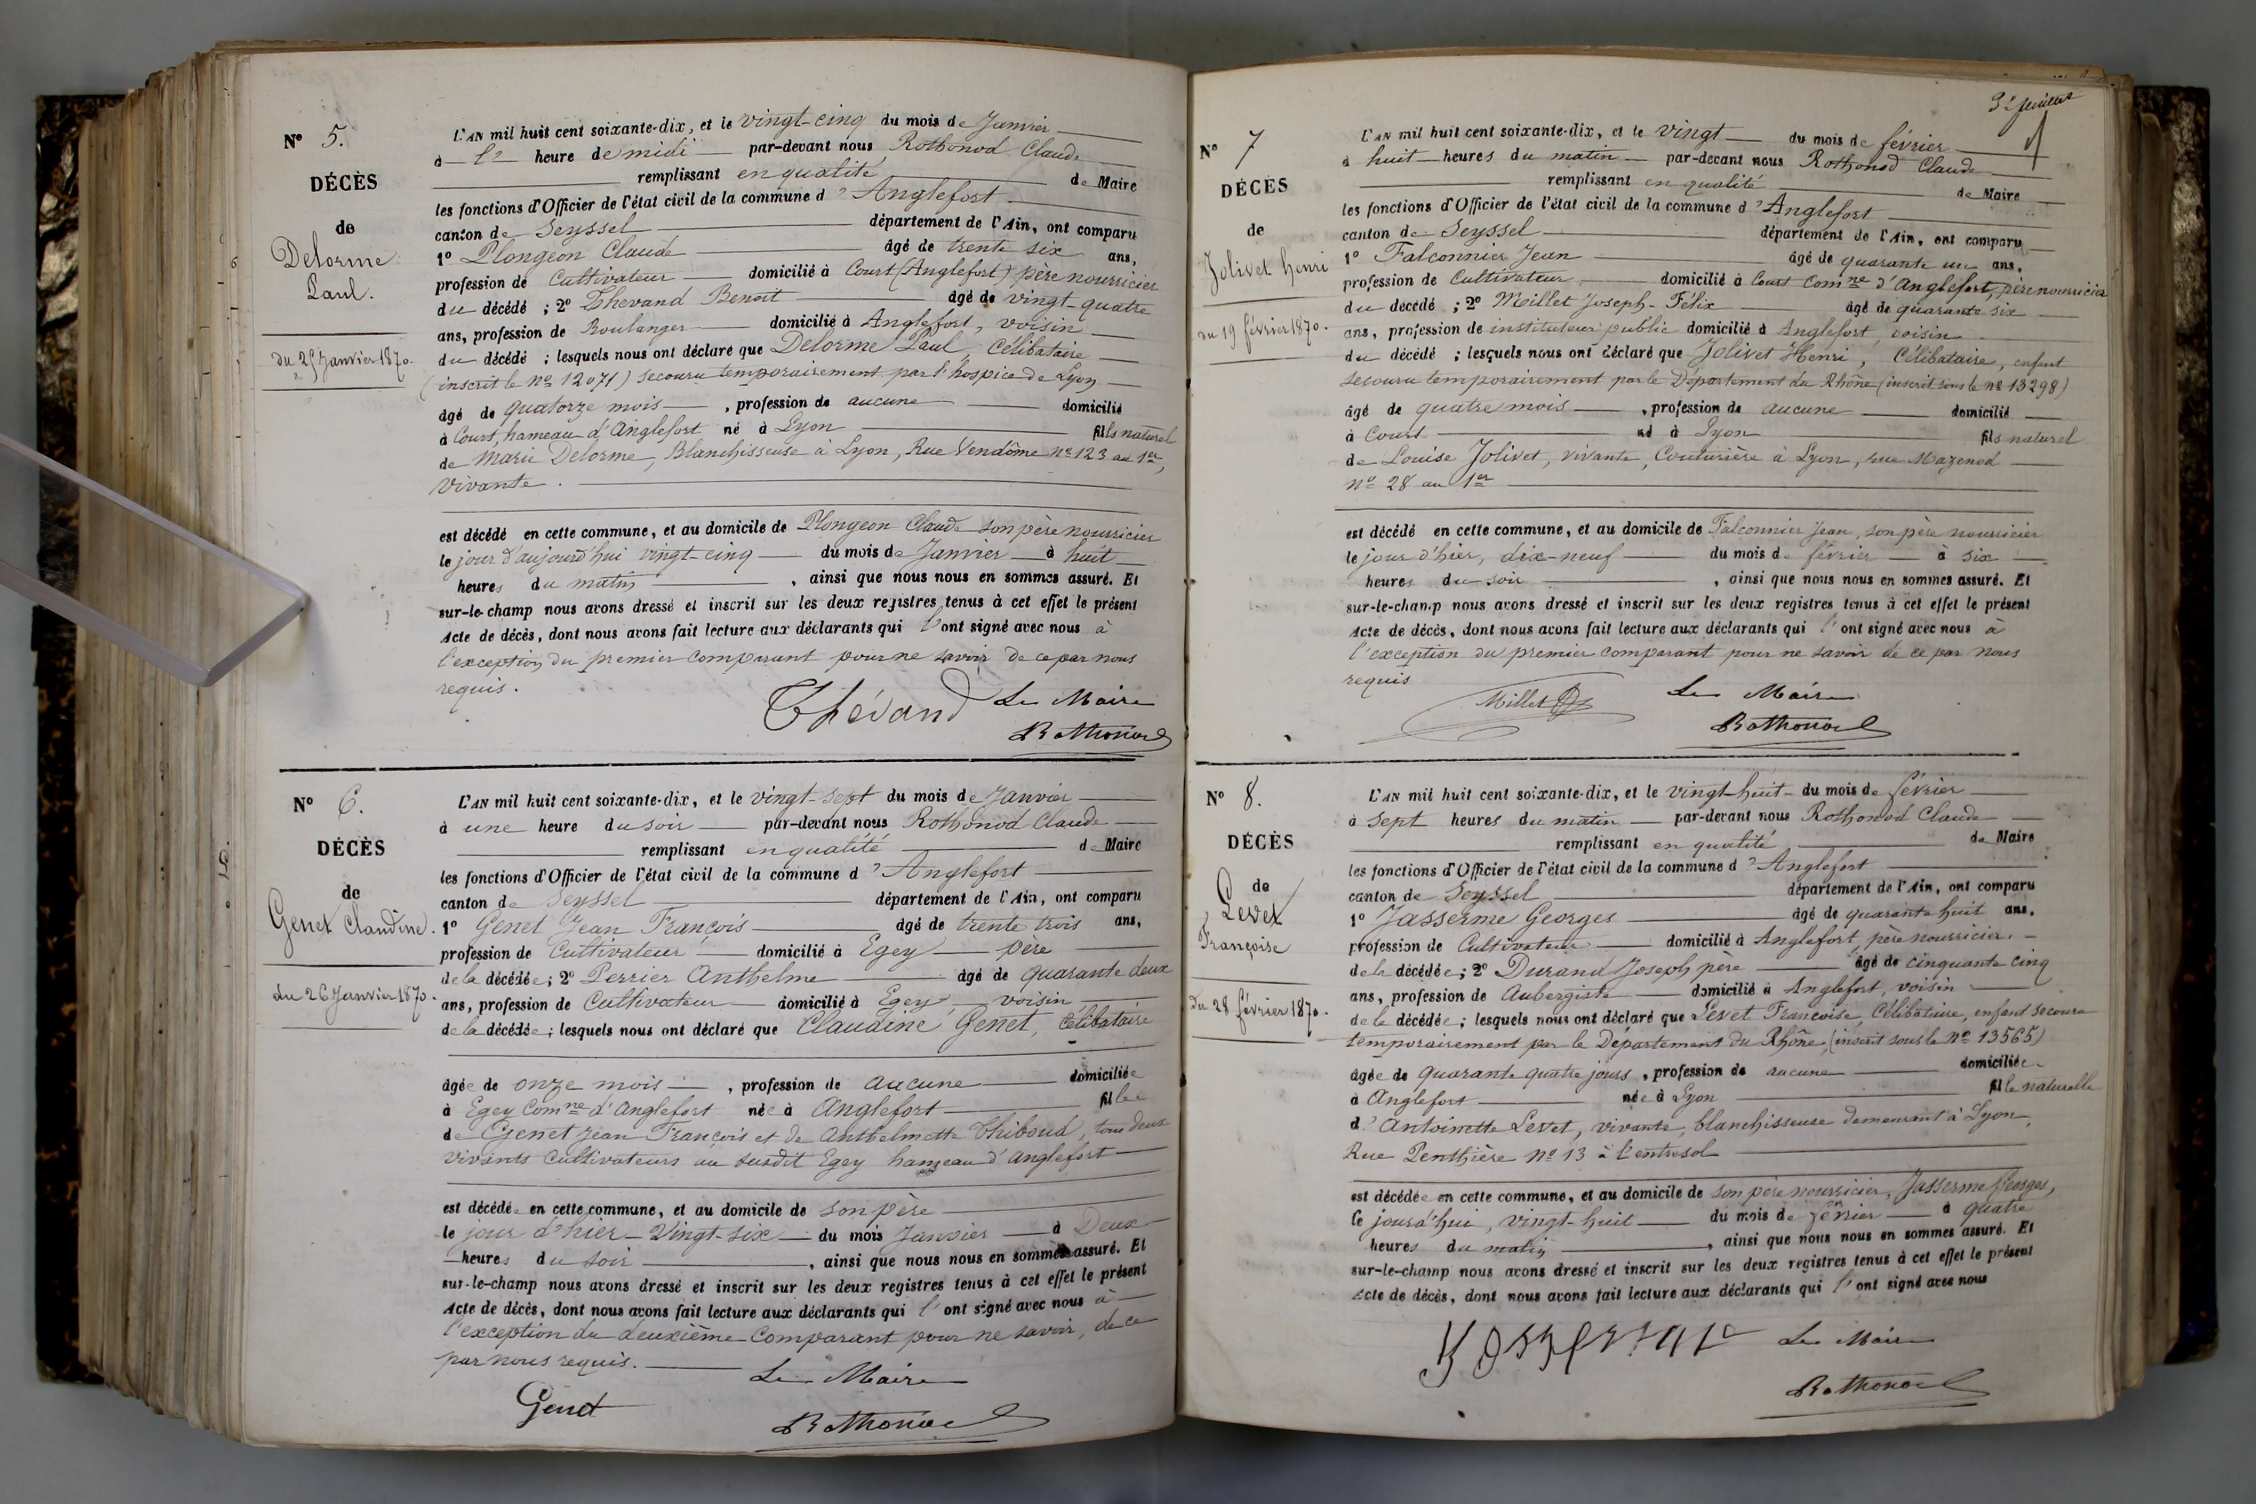 Nº 5.
DÉCÈS
de
Delorme
Paul.
du 25 Janvier 1870.
L'AN mil huit cent soixante-dix, et le vingt-cinq du mois de Janvier
à l' heure de midi par-devant nous Rothonod Claude
remplissant en qualité de Maire
les fonctions d'Officier de l'état civil de la commune d'Anglefort
canton de Seyssel département de l'Ain, ont comparu
1º Plongeon Claude âgé de trente six ans,
profession de Cultivateur domicilié à Court (Anglefort) père nourricier
du décédé ; 2º Thévand Benoit âgé de vingt-quatre
ans, profession de Boulanger domicilié à Anglefort, voisin
du décédé ; lesquels nous ont déclaré que Delorme Paul, Célibataire
(inscrit le nº 12071) secouru temporairement par l'hospice de Lyon
âgé de quatorze mois , profession de aucune domicilié
à Court, hameau d'Anglefort né à Lyon fils naturel
de Marie Delorme, Blanchisseuse à Lyon, Rue Vendôme nº 123 au 1er,
vivante.
est décédé en cette commune, et au domicile de Plongeon Claude son père nourricier
le jour d'aujourd'hui vingt-cinq du mois de Janvier à huit
heures du matin , ainsi que nous nous en sommes assuré. Et
sur-le-champ nous avons dressé et inscrit sur les deux registres tenus à cet effet le présent
Acte de décès, dont nous avons fait lecture aux déclarants qui l'ont signé avec nous à
l'exception du premier comparant pour ne savoir de ce par nous
requis.
Thévand Le Maire
Rothonod
Nº 6.
DÉCÈS
de
Genet Claudine.
du 26 Janvier 1870.
L'AN mil huit cent soixante-dix, et le vingt-sept du mois de Janvier
à une heure du soir par-devant nous Rothonod Claude
remplissant en qualité de Maire
les fonctions d'Officier de l'état civil de la commune d'Anglefort
canton de Seyssel département de l'Ain, ont comparu
1º Genet Jean François âgé de trente trois ans,
profession de Cultivateur domicilié à Egey père
de la décédée ; 2º Perrier Anthelme âgé de quarante deux
ans, profession de Cultivateur domicilié à Egey, voisin
de la décédée ; lesquels nous ont déclaré que Claudine Genet, Célibataire
âgée de onze mois , profession de aucune domiciliée
à Egey Comne d'Anglefort née à Anglefort fille
de Genet Jean François et de Anthelmette Thiboud, tous deux
vivants cultivateurs au susdit Egey hameau d'Anglefort
est décédée en cette commune, et au domicile de son père
le jour d'hier Vingt-six du mois Janvier à Deux
heures du soir , ainsi que nous nous en sommes assuré. Et
sur-le-champ nous avons dressé et inscrit sur les deux registres tenus à cet effet le présent
Acte de décès, dont nous avons fait lecture aux déclarants qui l'ont signé avec nous à
l'exception du deuxième Comparant pour ne savoir, de ce
par nous requis.
Le Maire
Genet
Rothonod
3e feuillet
Nº 7
DÉCÈS
de
Jolivet Henri
du 19 février 1870.
L'AN mil huit cent soixante-dix, et le vingt du mois de février
à huit heures du matin par-devant nous Rothonod Claude
remplissant en qualité de Maire
les fonctions d'Officier de l'état civil de la commune d'Anglefort
canton de Seyssel département de l'Ain, ont comparu
1º Falconnier Jean âgé de quarante un ans,
profession de Cultivateur domicilié à Court Comne d'Anglefort, père nourricier
du décédé ; 2º Millet Joseph-Félix âgé de quarante six
ans, profession de instituteur public domicilié à Anglefort, voisin
du décédé ; lesquels nous ont déclaré que Jolivet Henri, Célibataire, enfant
secouru temporairement par le Département du Rhône (inscrit sous le nº 13298)
âgé de quatre mois , profession de aucune domicilié
à Court né à Lyon fils naturel
de Louise Jolivet, vivante, Couturière à Lyon, rue Mazenod
nº 28 au 1er
est décédé en cette commune, et au domicile de Falconnier Jean, son père nourricier
le jour d'hier, dix-neuf du mois de février à six
heures du soir , ainsi que nous nous en sommes assuré. Et
sur-le-champ nous avons dressé et inscrit sur les deux registres tenus à cet effet le présent
Acte de décès, dont nous avons fait lecture aux déclarants qui l'ont signé avec nous à
l'exception du premier comparant pour ne savoir de ce par nous
requis
Millet Le Maire
Rothonod
Nº 8.
DÉCÈS
de
Levet
Françoise
Du 28 février 1870.
L'AN mil huit cent soixante-dix, et le vingt-huit du mois de février
à sept heures du matin par-devant nous Rothonod Claude
remplissant en qualité de Maire
les fonctions d'Officier de l'état civil de la commune d'Anglefort
canton de Seyssel département de l'Ain, ont comparu
1º Jasserme Georges âgé de quarante huit ans,
profession de Cultivateur domicilié à Anglefort, père nourricier.
de la décédée ; 2º Durand Joseph père âgé de cinquante cinq
ans, profession de Aubergiste domicilié à Anglefort, voisin
de la décédée ; lesquels nous ont déclaré que Levet Françoise, Célibataire, enfant secouru
temporairement par le Département du Rhône, (inscrit sous le Nº 13565)
âgée de quarante quatre jours , profession de aucune domiciliée
à Anglefort née à Lyon fille naturelle
d'Antoinette Levet, vivante, blanchisseuse demeurant à Lyon,
Rue Penthière nº 13 à l'entresol
est décédée en cette commune, et au domicile de son père nourricier, Jasserme Georges,
le jourd'hui, vingt-huit du mois de février à quatre
heures du matin , ainsi que nous nous en sommes assuré. Et
sur-le-champ nous avons dressé et inscrit sur les deux registres tenus à cet effet le présent
Acte de décès, dont nous avons fait lecture aux déclarants qui l'ont signé avec nous
Le Maire
Rothonod